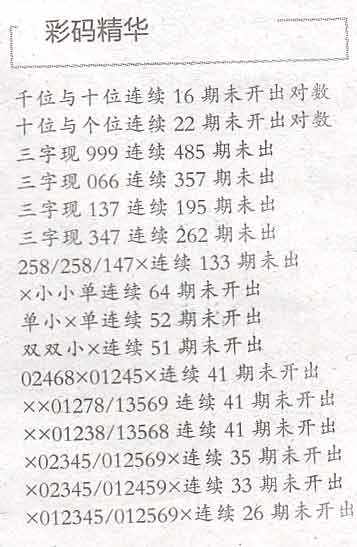 彩码精华
千位与十位连续 16 期未开出对数
十位与个位连续 22 期未开出对数
三字现 999 连续 485 期未出
三字现 066 连续 357 期未出
三字现 137 连续 195 期未出
三字现 347 连续 262 期未出
258/258/147×连续 133 期未出
×小小单连续 64 期未开出
单小×单连续 52 期未开出
双双小×连续 51 期未开出
02468×01245×连续 41 期未开出
××01278/13569 连续 41 期未开出
××01238/13568 连续 41 期未开出
×02345/012569×连续 35 期未开出
×02345/012459×连续 33 期未开出
×012345/012569×连续 26 期未开出